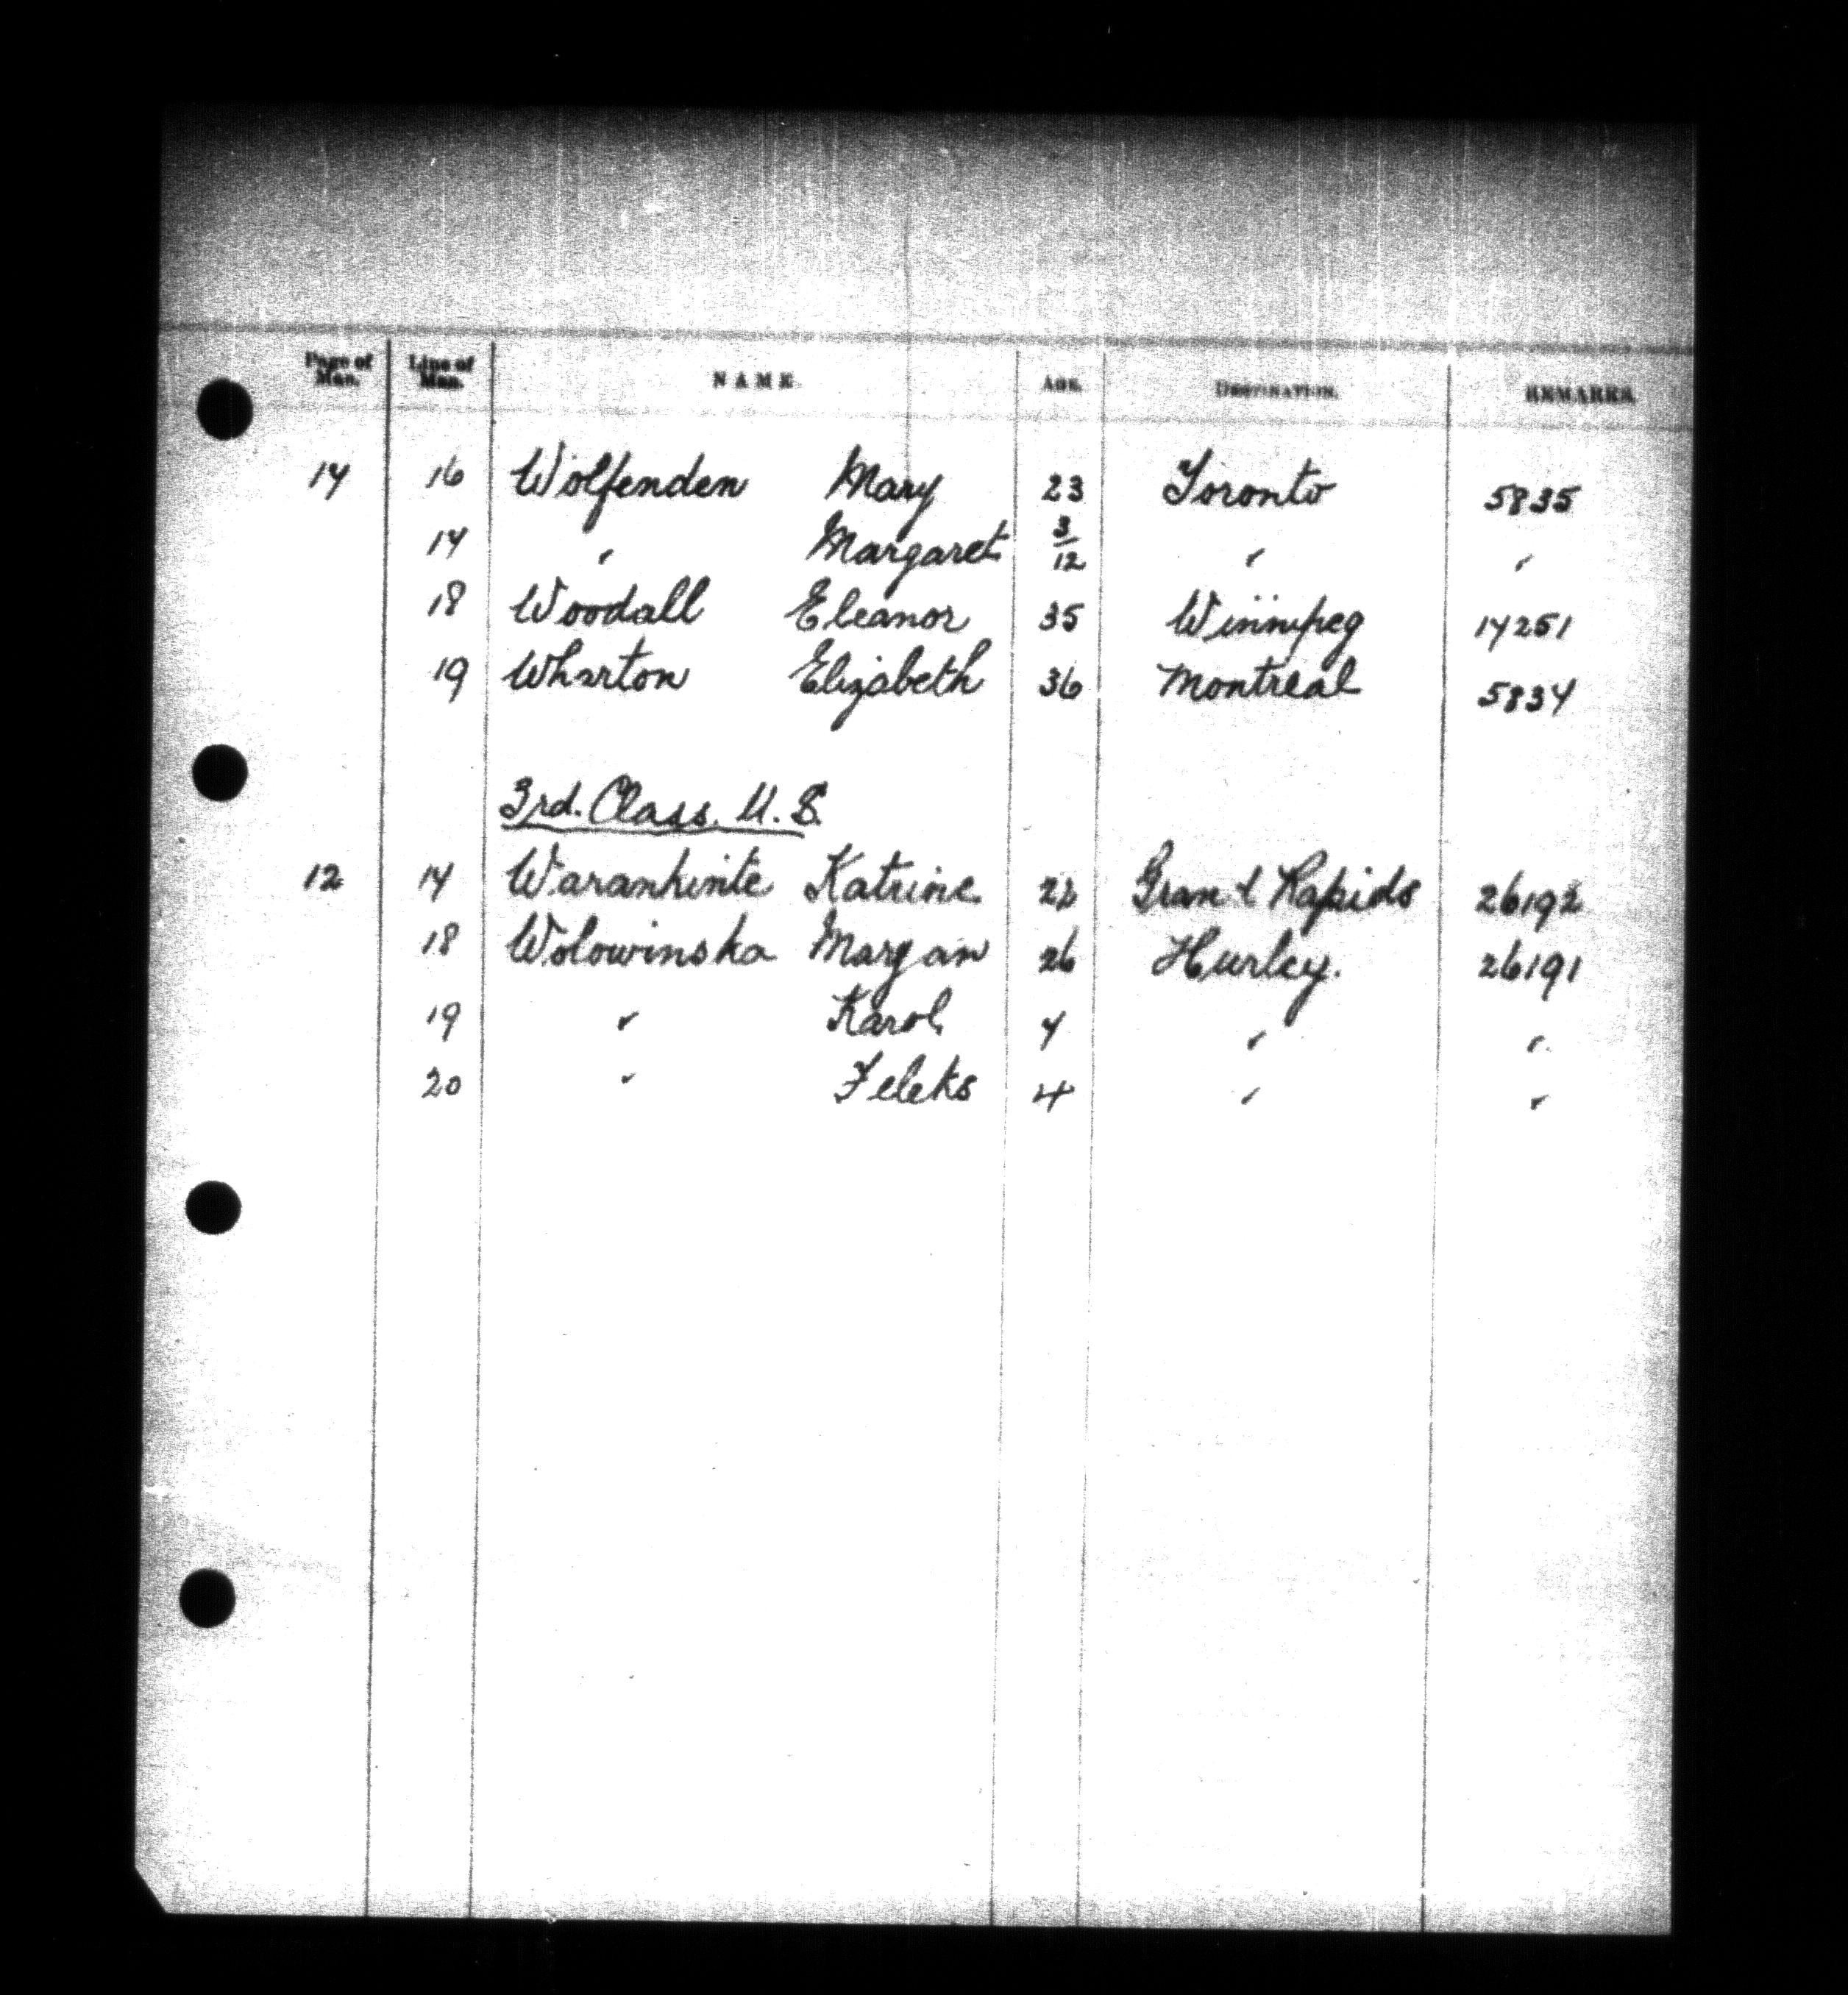 Page of Man. Line of Man. NAME. AGE. DESTINATION. REMARKS.
17 16 Wolfenden Mary 23 Toronto 5835
17 " Margaret 3/12 " "
18 Woodall Eleanor 35 Winnipeg 17251
19 Wharton Elizabeth 36 Montreal 5837
3rd. Class. U.S.
12 17 Warankinte Katrine Grand Rapids 26192
18 Wolowinska Maryan 26 Hurley. 26191
19 " Karol 7 " "
20 " Feleks 4 " "